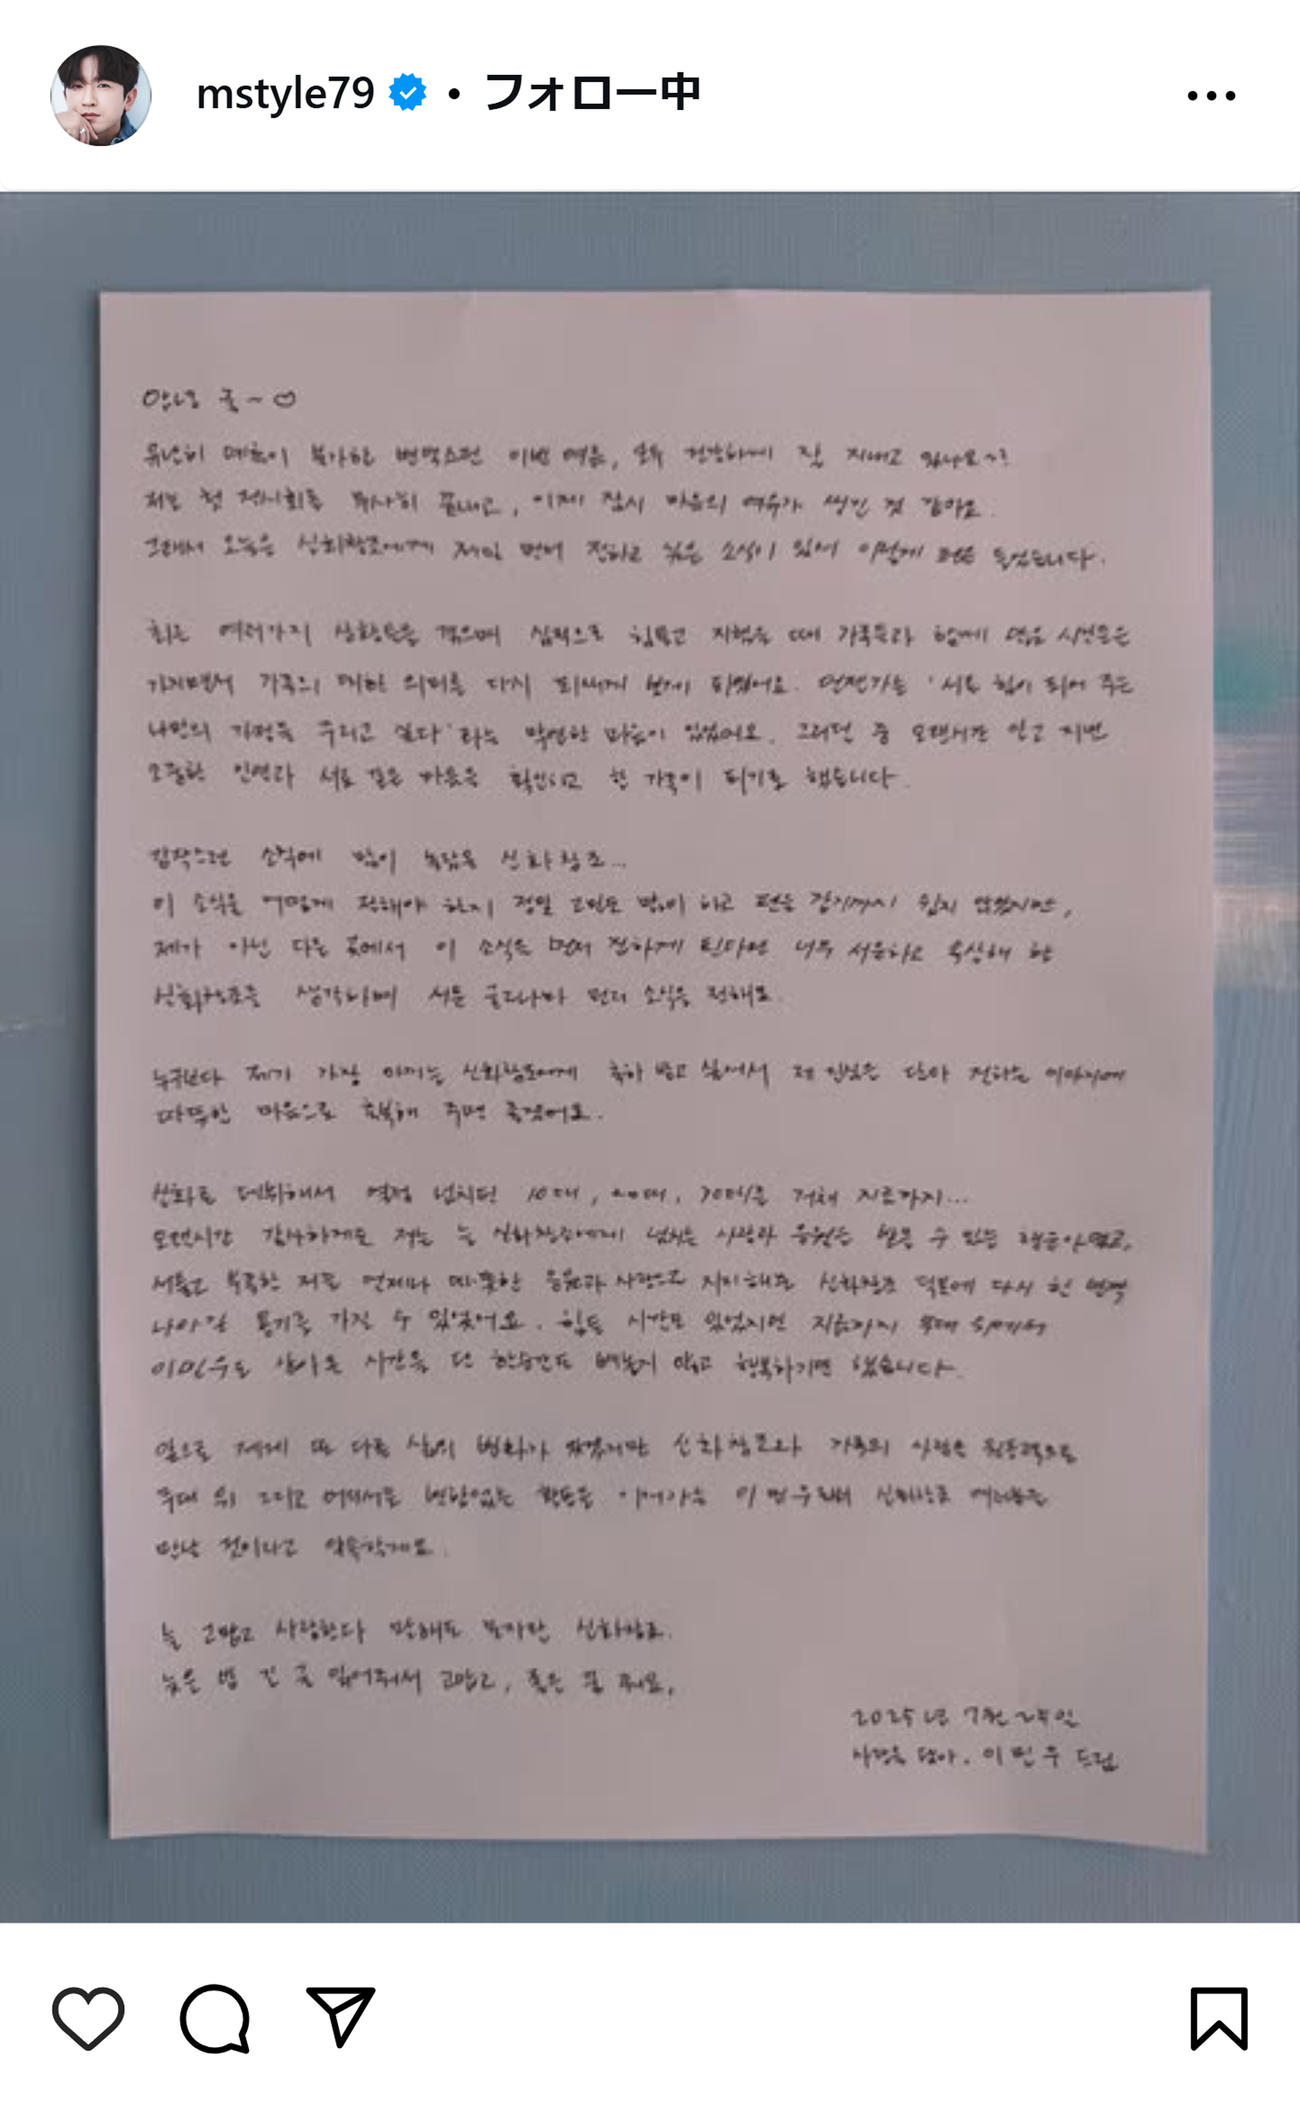 mstyle79 • フォロー中
안녕 굴~♡
유난히 더 변덕스런 이번 여름, 모두 건강하게 잘 지내고 있나요~?
저는 첫 전시회를 무사히 끝내고, 이제 잠시 마음의 여유가 생긴 것 같아요.
그래서 오늘은 신화창조에게 제일 먼저 전하고 싶은 소식이 있어 이렇게 펜을 들었습니다.
최근 여러가지 상황들을 겪으며 심적으로 힘들고 지쳤을 때 가족들과 함께 많은 시간들을
가지면서 가족의 대한 의미를 다시 되새기게 되었어요. 언젠가는 '서로 힘이 되어 주는
나만의 가정을 꾸리고 싶다'라는 막연한 마음이 있었어요. 그러던 중 오랜시간 알고 지낸
소중한 인연과 서로 같은 마음을 확인하고 한 가족이 되기로 했습니다.
갑작스런 소식에 많이 놀랐을 신화창조...
이 소식을 어떻게 전해야 할지 정말 고민도 많이 하고 펜을 잡기까지 쉽지 않았지만,
제가 아닌 다른 곳에서 이 소식을 먼저 접하게 된다면 너무 서운하고 속상해 할
신화창조를 생각하며 서둘러 먼저 소식을 전해요.
누구보다 제가 가장 아끼는 신화창조에게 축하 받고 싶어서 제 진심을 담아 전하는 이야기에
따뜻한 마음으로 축복해 주면 좋겠어요.
신화로 데뷔해서 열정 넘치던 10대, 20대, 30대를 거쳐 지금까지...
오랜시간 감사하게도 저는 늘 신화창조에게 넘치는 사랑과 응원을 받을 수 있는 행운아였고,
서툴고 부족한 저를 언제나 따뜻한 응원과 사랑으로 지지해준 신화창조 덕분에 다시 한 번 더
나아갈 용기를 가질 수 있었어요. 힘든 시간도 있었지만 지금까지 무대 위에서
이민우로 살아온 시간을 단 한순간도 빼놓지 않고 행복하기만 했습니다.
앞으로 제게 또 다른 삶의 변화가 있겠지만 신화창조와 가족의 사랑을 원동력으로
무대 위 그리고 어디서든 변함없는 활동을 이어가는 이민우로써 신화창조 여러분을
만날 것이라고 약속할게요.
늘 고맙고 사랑한다 말해도 모자란 신화창조.
늦은 밤 긴 글 읽어줘서 고맙고, 좋은 꿈 꿔요.
2025년 7월 25일
사랑을 담아. 이민우 드림